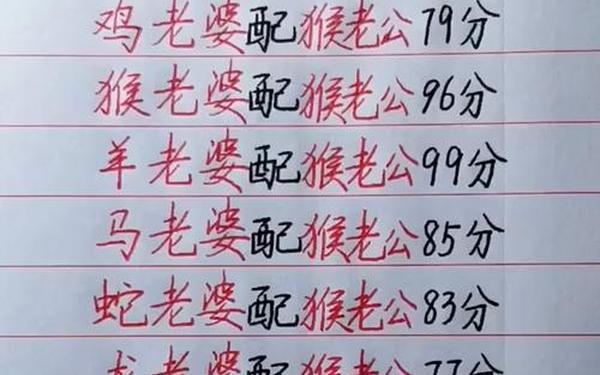 鸡老婆配猴老公79分
猴老婆配猴老公96分
羊老婆配猴老公99分
马老婆配猴老公85分
蛇老婆配猴老公83分
龙老婆配猴老公77分